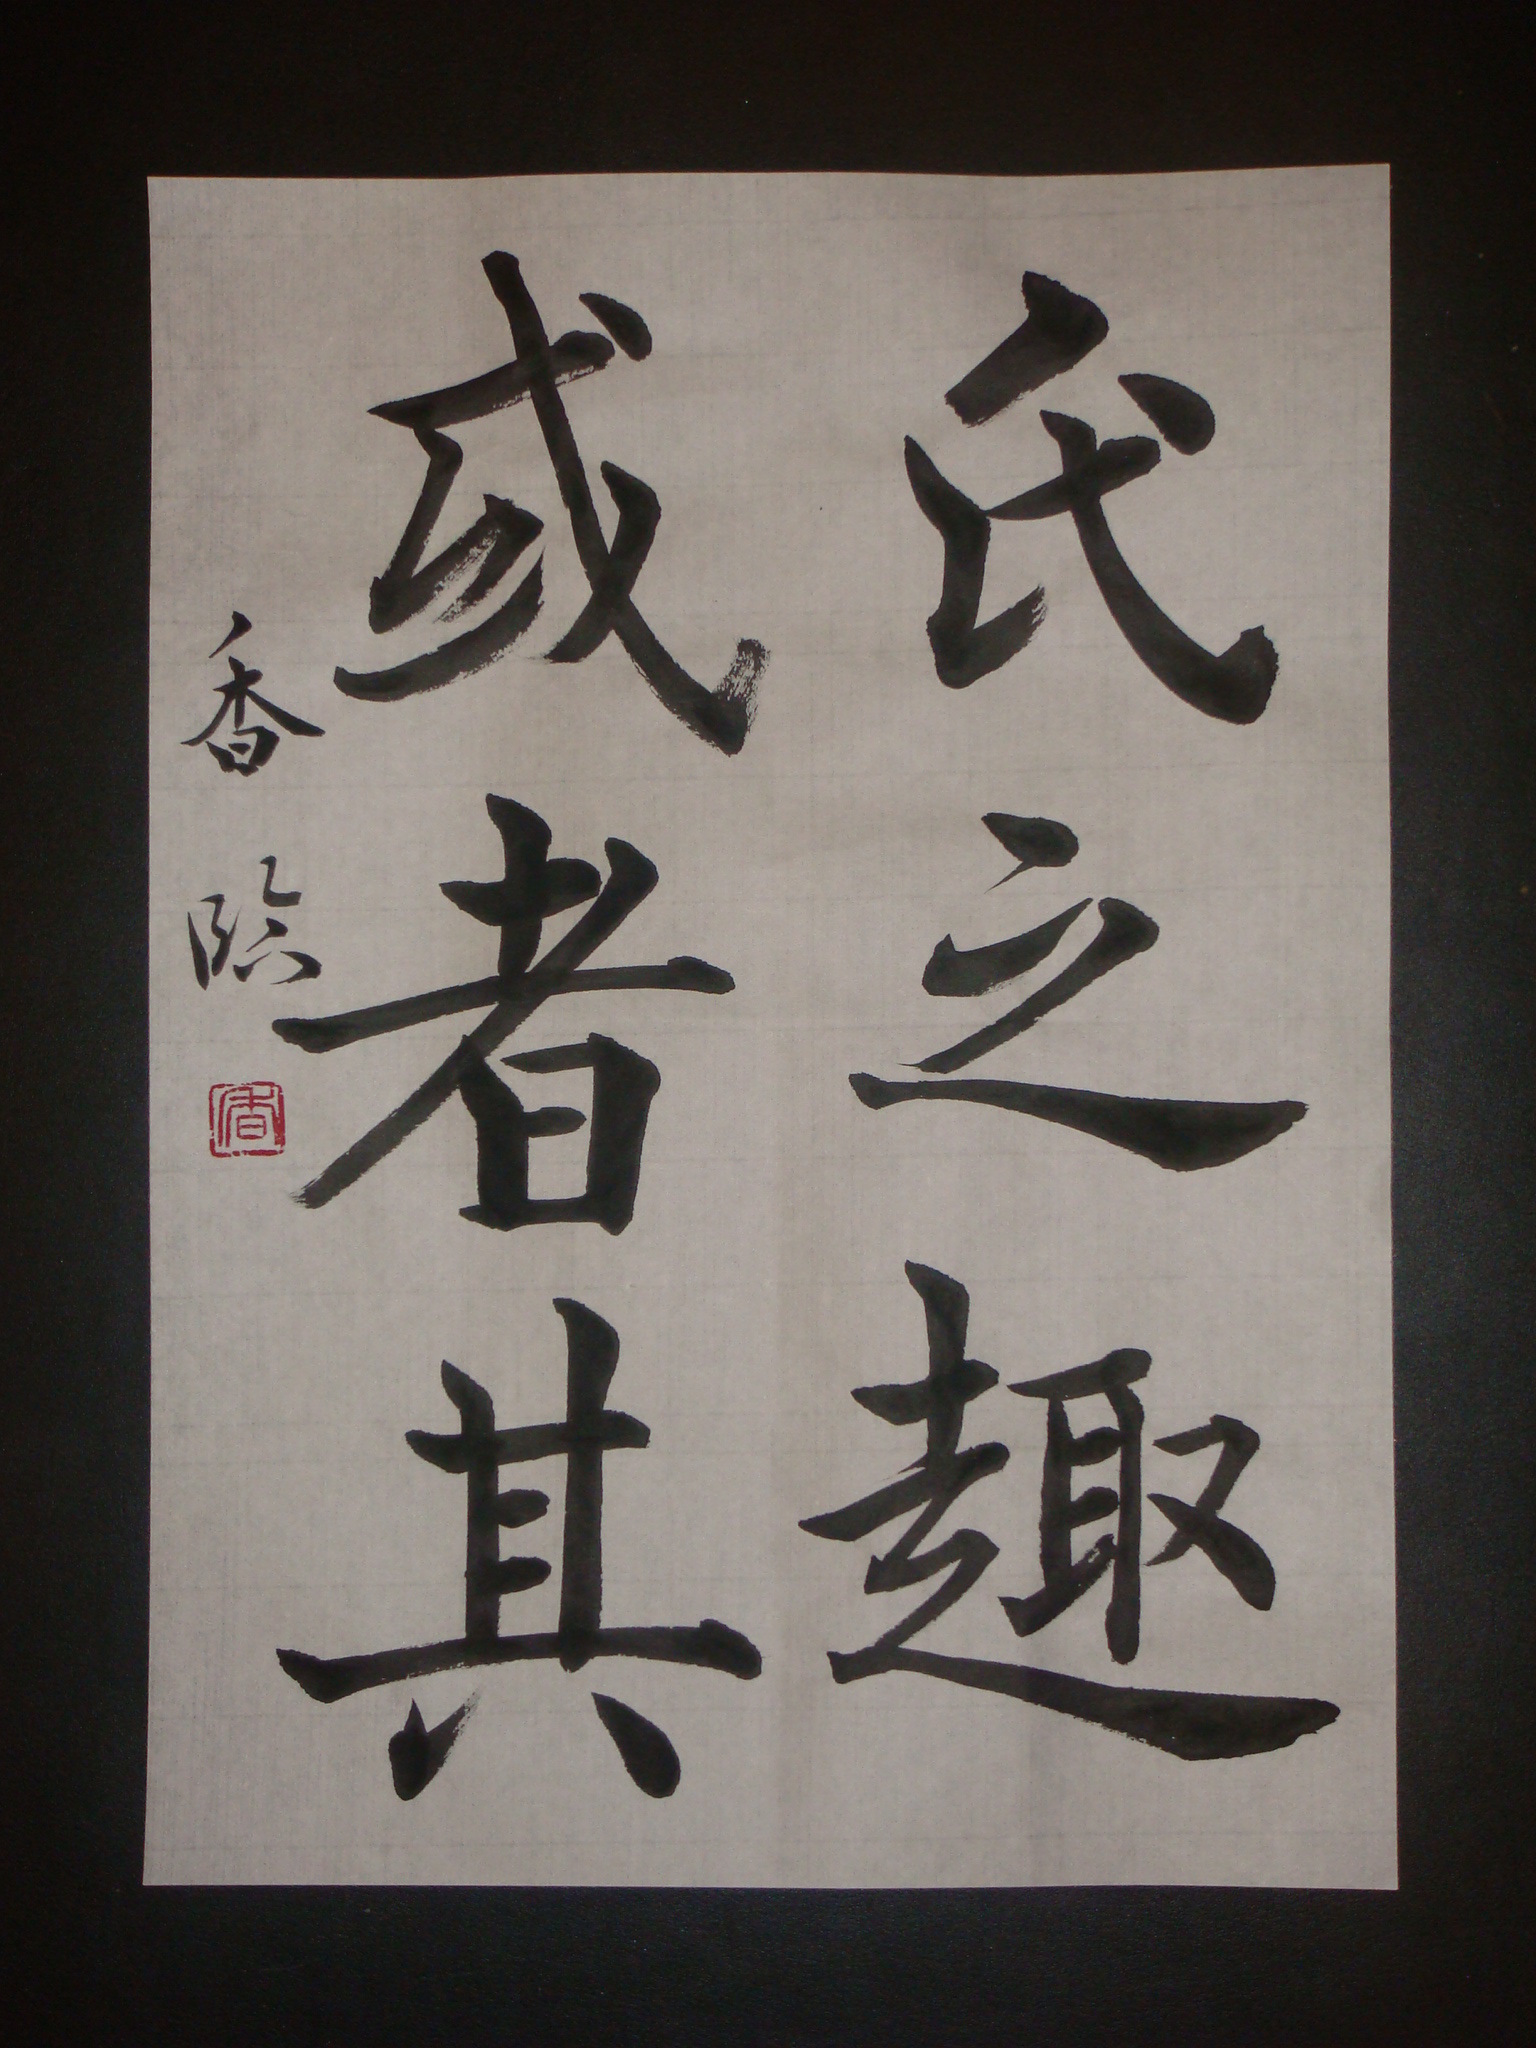 氏之趣
或者其
香臨
香